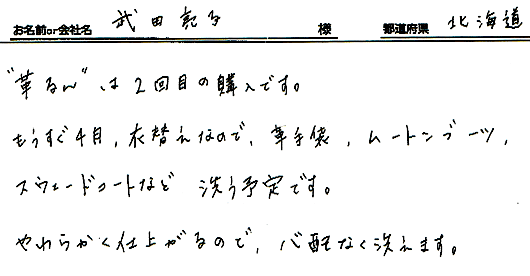 お名前or会社名 武田記子 様 都道府県 北海道
"革るん"は2回目の購入です。
もうすぐ4月,衣替えなので,革手袋,ムートンブーツ,
スウェードコートなど 洗う予定です。
やわらかく仕上がるので,心配なく洗えます。